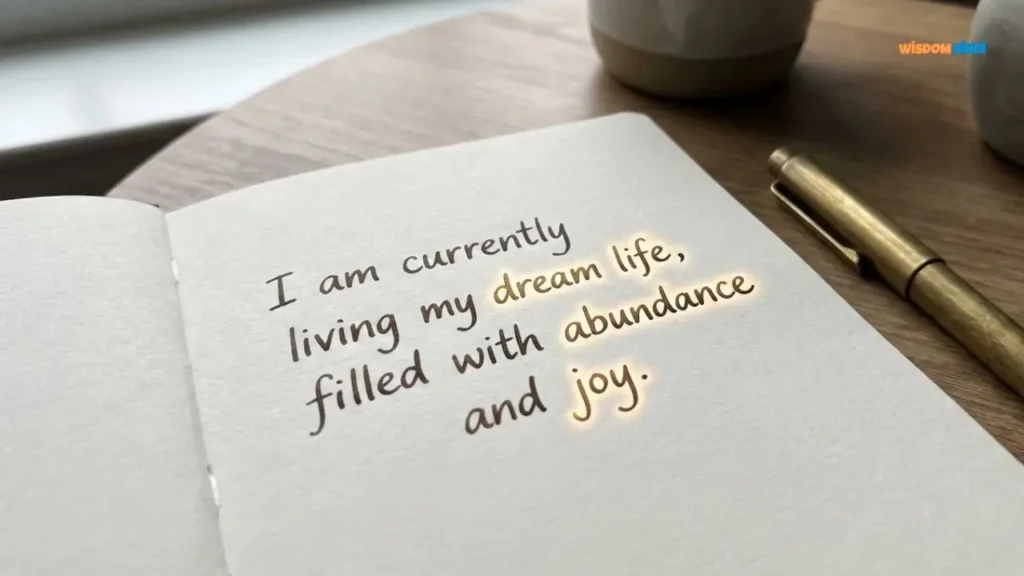 WISDOM HINDI
I am currently
living my dream life,
filled with abundance
and joy.